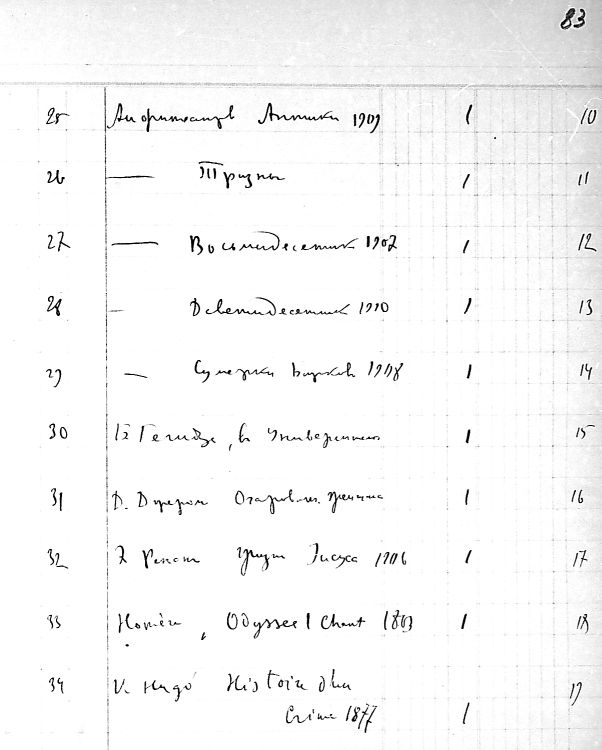 83
25 Амфитеатров Антики 1909 1 10
26 — Тризны 1 11
27 — Восьмидесятник 1907 1 12
28 — Девятидесятник 1910 1 13
29 — Сумерки Божков 1908 1 14
30 в Университет 1 15
31 Д. 1 16
32 Ренан Иисуса 1906 1 17
33 Homère, Odyssee 1 Chant 1 18
34 V. Hugó Histoire d'un 19
Crime 1877 1